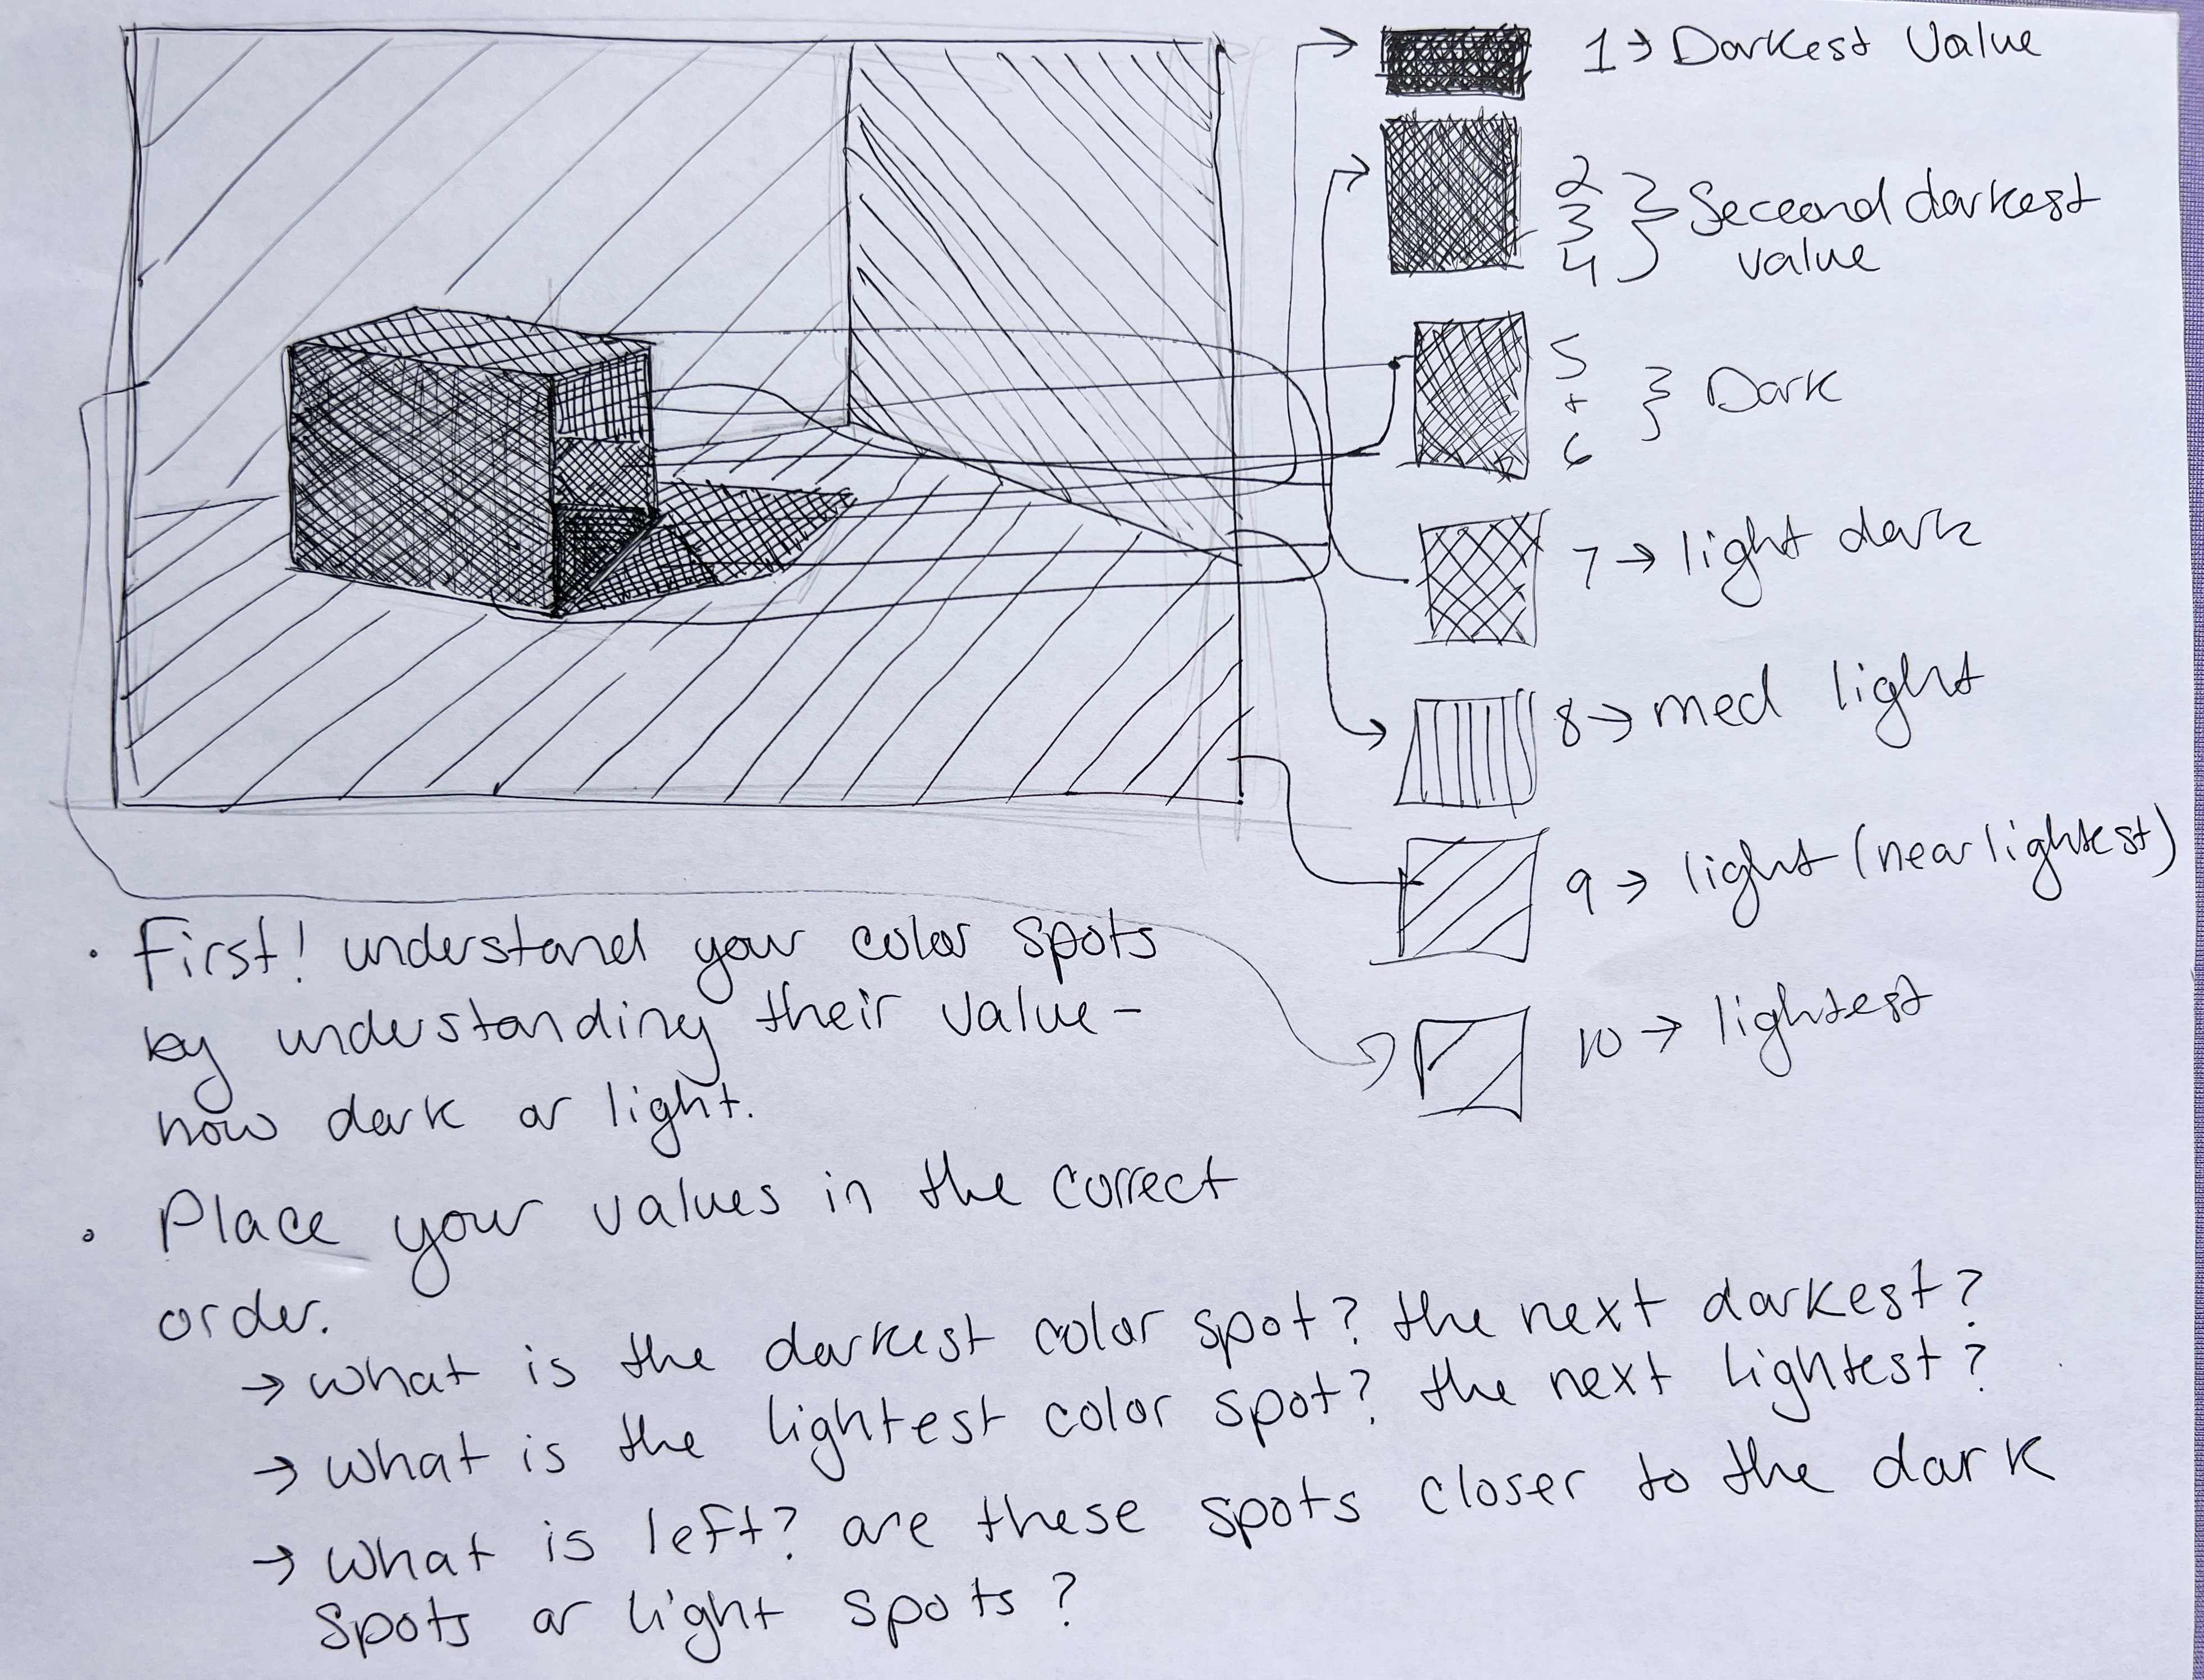 1 → Darkest Value
2
3
4
Seceond darkest
value
5
+
6
Dark
7 → light dark
8 → med light
9 → light (near lightest)
10 → lightest
• First! understand your color spots
by understanding their value –
how dark or light.
• Place your values in the correct
order.
→ what is the darkest color spot? the next darkest?
→ what is the lightest color spot? the next lightest?
→ what is left? are these spots closer to the dark
spots or light spots?